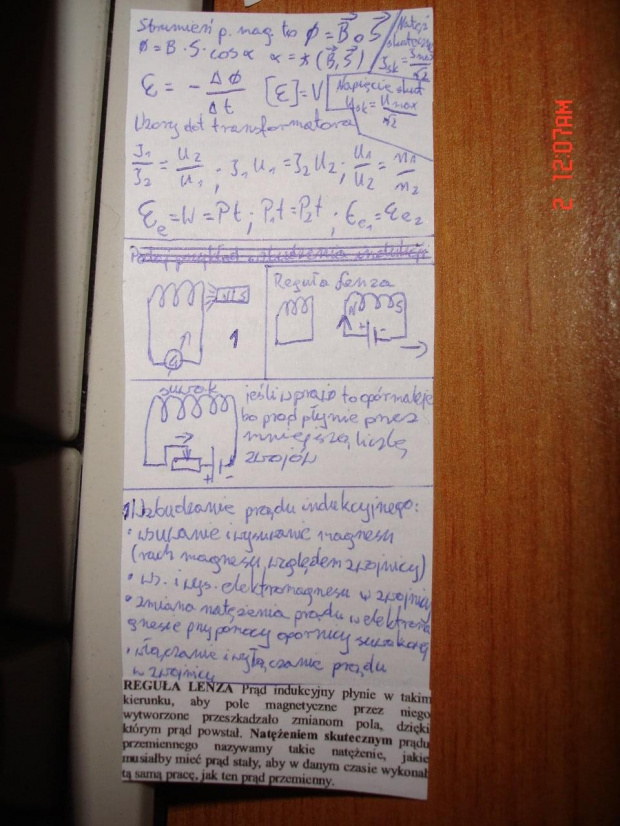 Strumień p. mag. to ϕ = B⃗ o S⃗
ϕ = B · S · cos α   α = ∢ (B⃗, S⃗)
Natęż
skuteczne
Jsk = Jmax/√2
ε = - Δϕ/Δt   [ε] = V
Napięcie skut
Usk = Umax/√2
Wzory dot transformatora
J1/J2 = U2/U1 ; J1 U1 = J2 U2 ; U1/U2 = n1/n2
εe = W = Pt ; P1t = P2t ; εe1 = εe2
N S
G
1
Reguła Lenza
N S
+ -
suwak
+ -
jeśli w prawo to opór maleje
bo prąd płynie przez
mniejszą liczbę
zwojów
1 Wzbudzanie prądu indukcyjnego:
• wsuwanie i wysuwanie magnesu
(ruch magnesu względem zwojnicy)
• ws. i wys. elektromagnesu w zwojnicy
• zmiana natężenia prądu w elektroma
gnesie przy pomocy opornicy suwakowej
• włączanie i wyłączanie prądu
w zwojnicy
REGUŁA LENZA Prąd indukcyjny płynie w takim
kierunku, aby pole magnetyczne przez niego
wytworzone przeszkadzało zmianom pola, dzięki
którym prąd powstał. Natężeniem skutecznym prądu
przemiennego nazywamy takie natężenie, jakie
musiałby mieć prąd stały, aby w danym czasie wykonał
tą samą pracę, jak ten prąd przemienny.
2 12:07AM